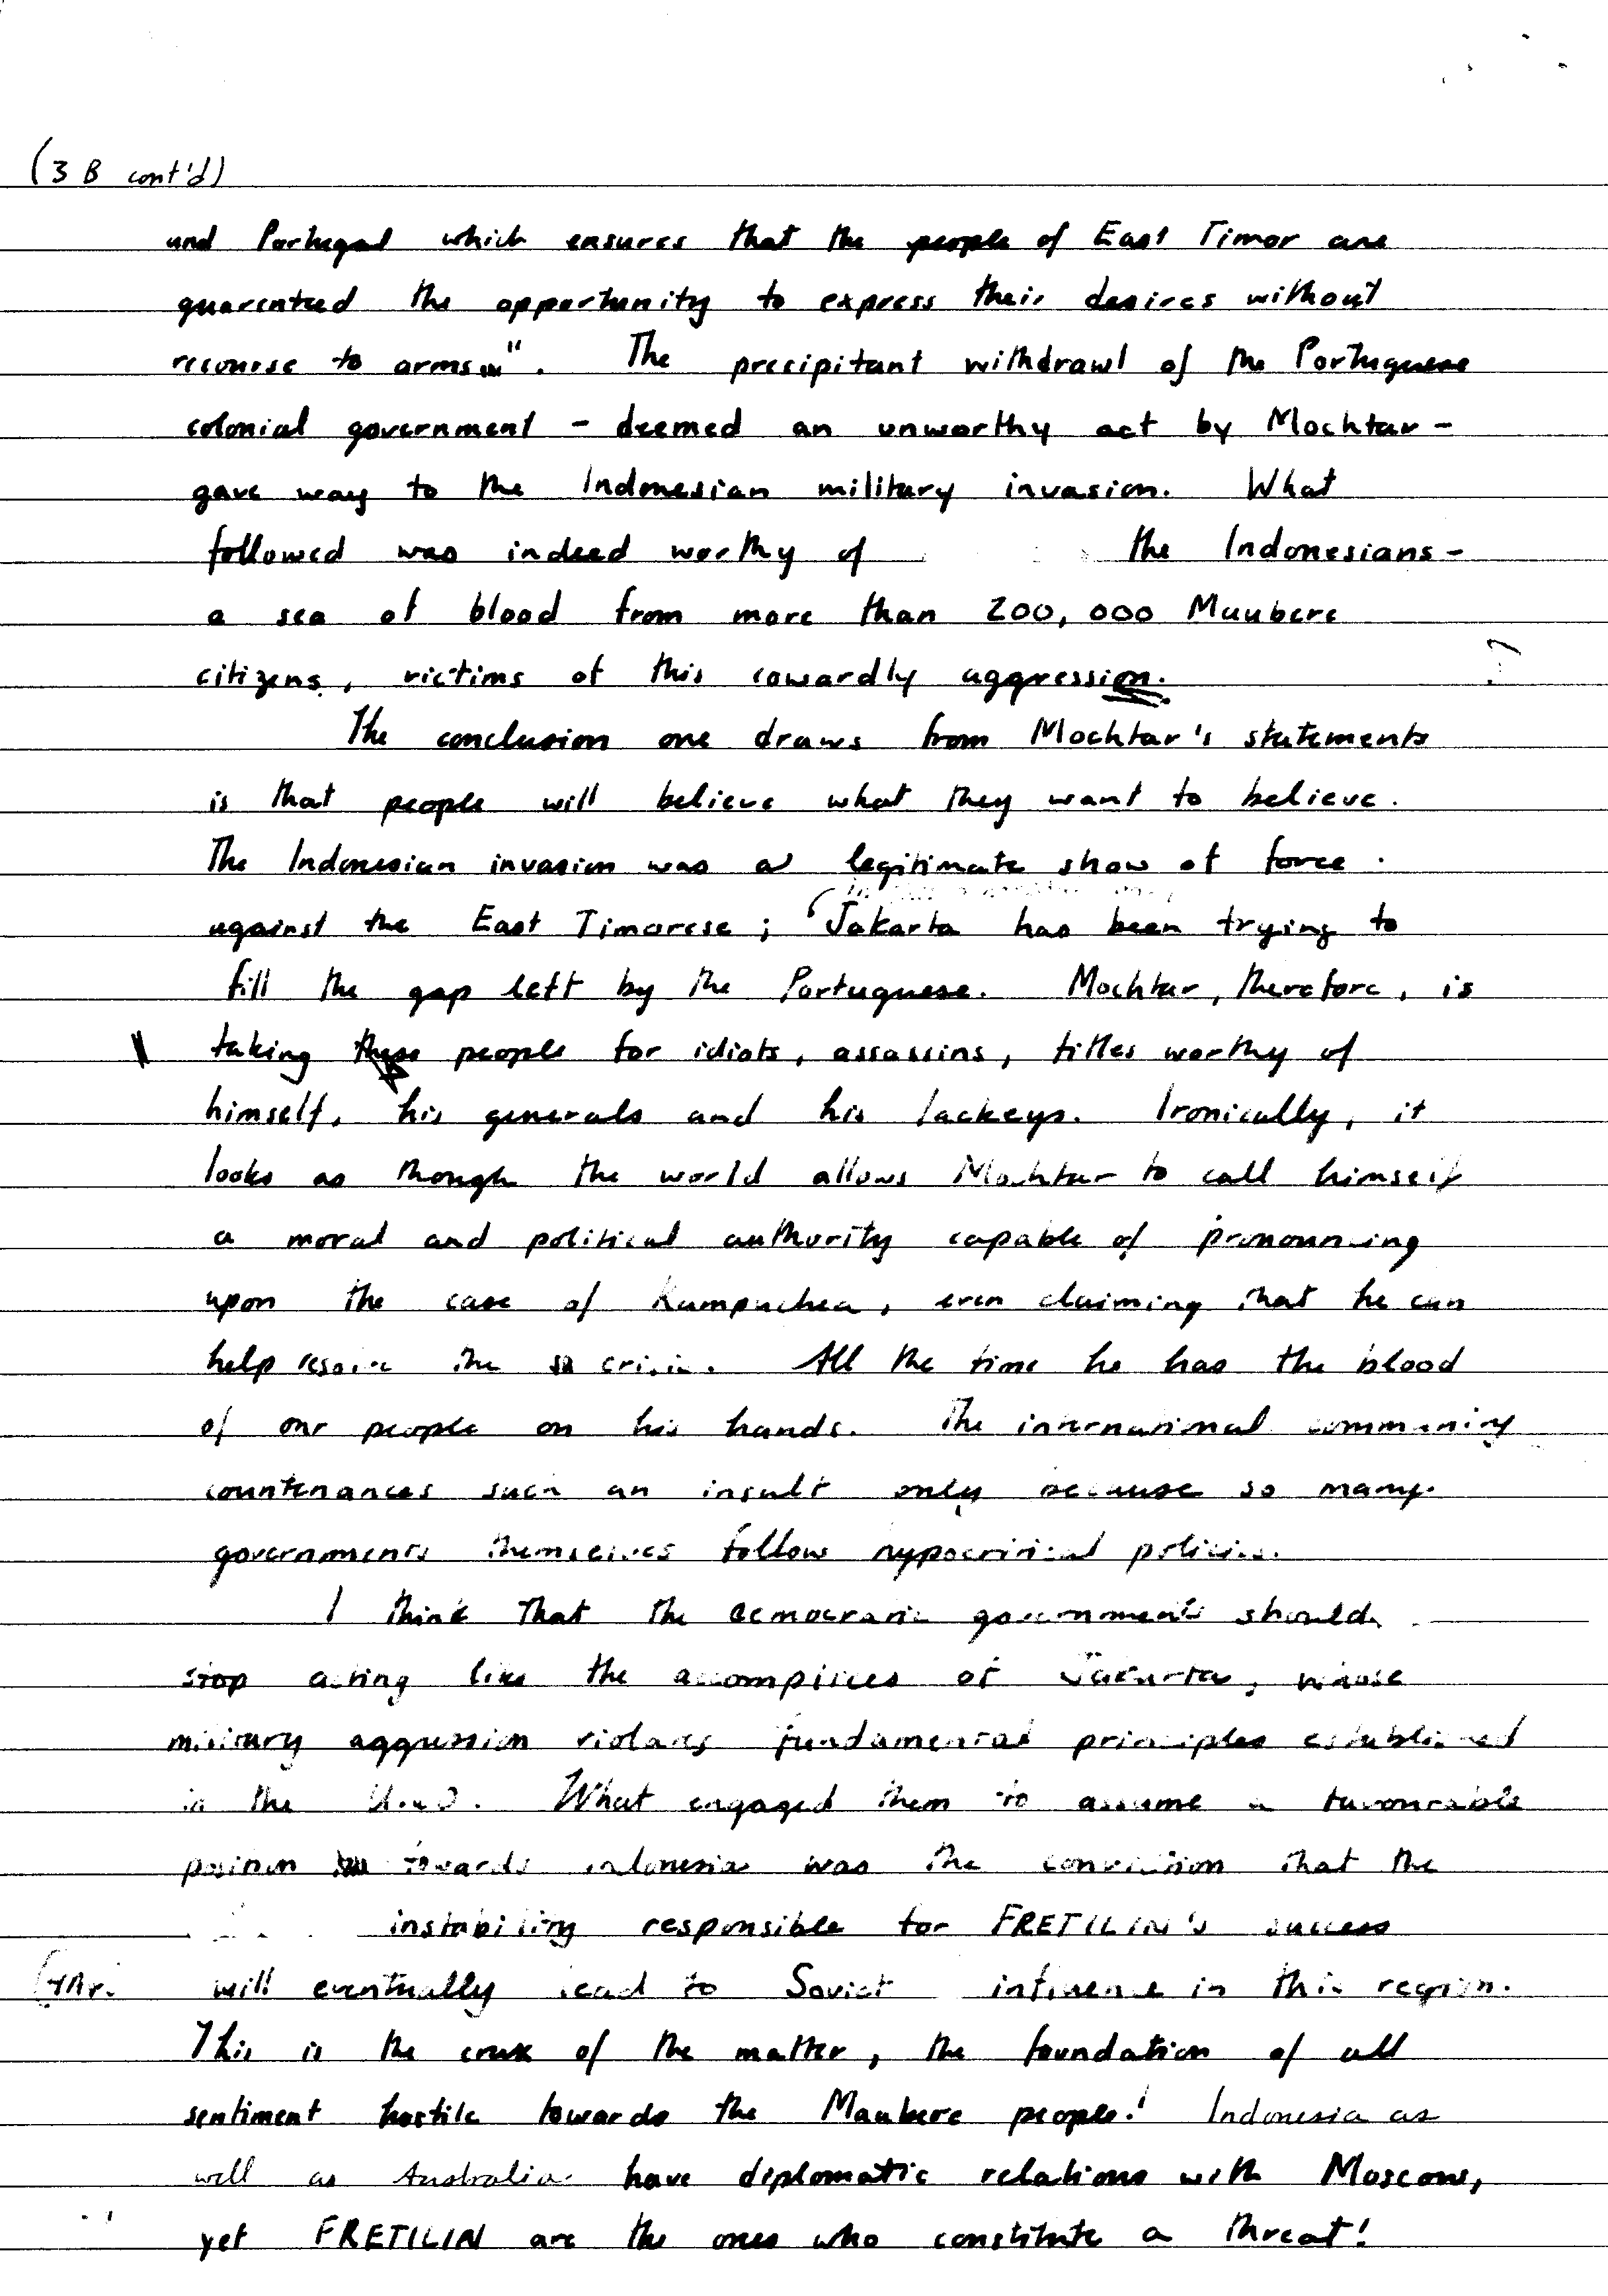 (3 B cont'd)
and Portugal which ensures that the people of East Timor are
guarenteed the opportunity to express their desires without
recourse to arms". The precipitant withdrawl of the Portuguese
colonial government - deemed an unworthy act by Mochtar -
gave way to the Indonesian military invasion. What
followed was indeed worthy of the Indonesians -
a sea of blood from more than 200,000 Maubere
citizens, victims of this cowardly aggression.
The conclusion one draws from Mochtar's statements
is that people will believe what they want to believe.
The Indonesian invasion was a legitimate show of force
against the East Timorese; Jakarta has been trying to
fill the gap left by the Portuguese. Mochtar, therefore, is
taking these people for idiots, assassins, titles worthy of
himself, his generals and his lackeys. Ironically, it
looks as though the world allows Mochtar to call himself
a moral and political authority capable of pronouncing
upon the case of Kampuchea, even claiming that he can
help resolve the crisis. All the time he has the blood
of our people on his hands. The international community
countenances such an insult only because so many
governments themselves follow hypocritical policies.
I think that the democratic governments should
stop acting like the accomplices of Jakarta, whose
military aggression violates fundamental principles established
in the U.N.O. What engaged them to assume a favourable
position towards Indonesia was the conviction that the
instability responsible for FRETILIN's success
will eventually lead to Soviet influence in this region.
This is the crux of the matter, the foundation of all
sentiment hostile towards the Maubere people! Indonesia as
well as Australia have diplomatic relations with Moscow,
yet FRETILIN are the ones who constitute a threat!